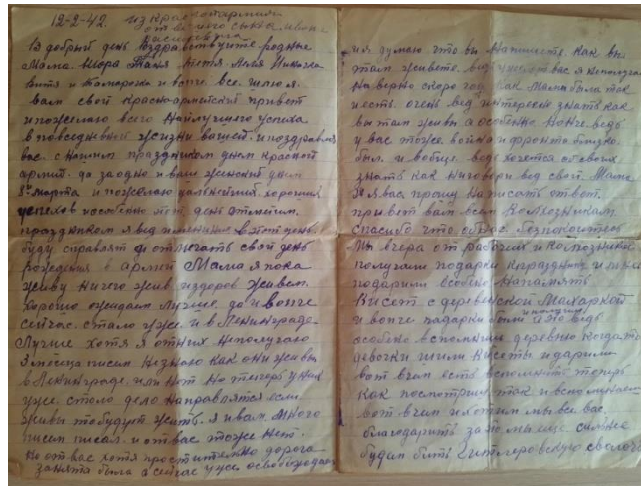 12-2-42. из Красноармии
от вашего сына Ивана
Васильевича
в добрый день здравствуйте родные
Мама Шора Таня Тетя Леля Ниночка
Витя и Тамарочка и вопче все шлю я
вам свой красноармейский привет
и пожелаю всего наилучшего успеха
в повседневной жизни вашей и поздравляю
вас с нашим праздником днем красной
армии. да заодно и ваш женский день
8е марта и пожелаю дальнейших хороших
успехов день отметим
праздником я вид именинник в этот день
буду справлят и отмечать свой день
рождения в армии Мама я пока
живу ничего жив издоров живем
хорошо ожидаем лучше. да и вопче
сейчас стало уже и в Ленинграде
Лучше хотя я от них неполучаю
3 месеца писем незнаю как они живы
в Ленинграде или нет но теперь у нас
уже дело направлятся если
живы то будут жить. я и вам много
писем писал и от вас тоже нет.
но от вас хотя простительно дорога
занята была а сейчас уже освобождает
ия думаю что вы напишете как вы
там живете ведь уже от вас я неполучал
наверно скоро год как мама была так
и есть очень вед интересно знать как
вы там живы а особенно ведь
у вас тоже война и фронт близко
был и вобще ведь хочется от своих
знать как ниговори вед свои Мама
я вас прошу написать ответ.
привет вам всем колхозникам
спасибо что о нас безпокоитесь
мы вчера от рабочих и колхозников
получали подарки кпразднику и мне
подарили особено напамять
Кисет с деревенской Махаркой
и вопче падарки были и я получил это ведь
особено вспомниш деревню когда то
девочки шили кисеты и дарили
вот в чем есть вспомнить теперь
как посмотриш так и вспоминаеш
вот в чем и хотим мы все вас
благодарить за то мы еще сильнее
будем бить Гитлеровскую сволочь